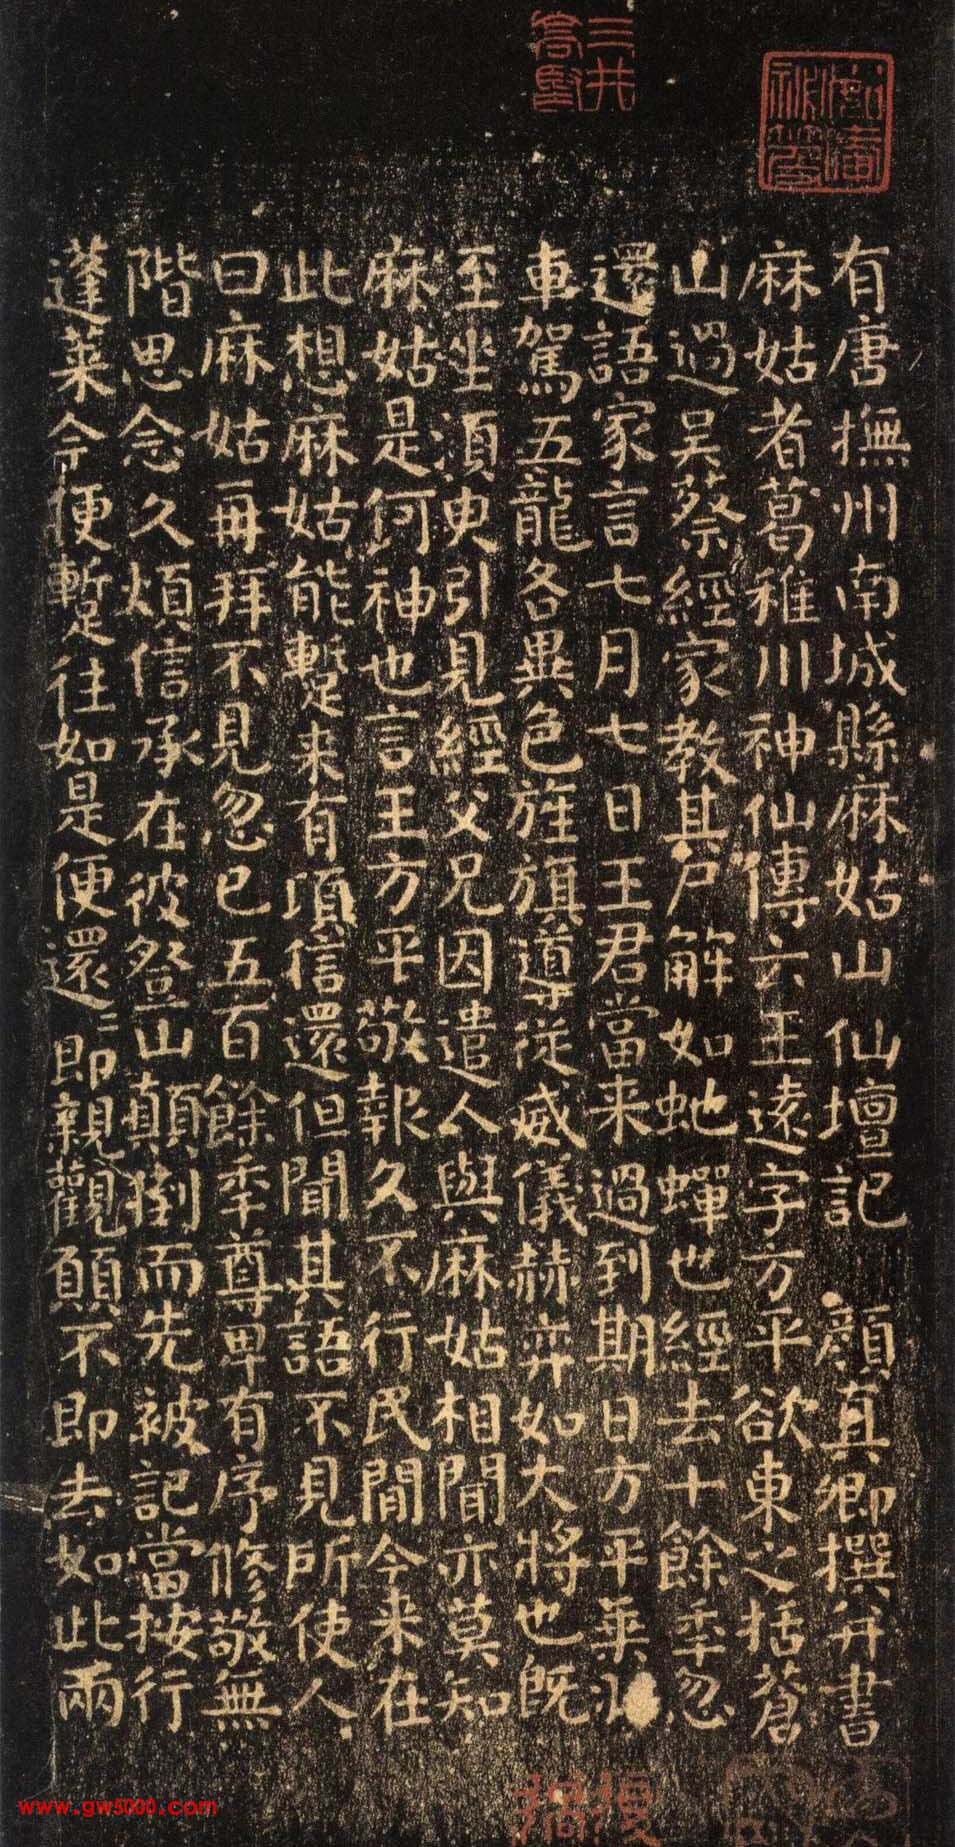 有唐撫州南城縣麻姑山仙壇記 顏真卿撰并書
麻姑者葛稚川神仙傳云王遠字方平欲東之括蒼
山過吳蔡經家教其尸解如虵蟬也經去十餘秊忽
還語家言七月七日王君當来過到期日方平乗
車駕五龍各異色旌旗導從威儀赫弈如大將也既
至坐湏臾引見經父兄因遣人與麻姑相聞亦莫知
麻姑是何神也言王方平敬報久不行民間今来在
此想麻姑能蹔来有頃信還但聞其語不見所使人
曰麻姑再拜不見忽已五百餘秊尊卑有序修敬無
階思念久煩信承在彼登山顛倒而先被記當按行
蓬萊今便蹔往如是便還還即親覲願不即去如此兩
www.gw5000.com